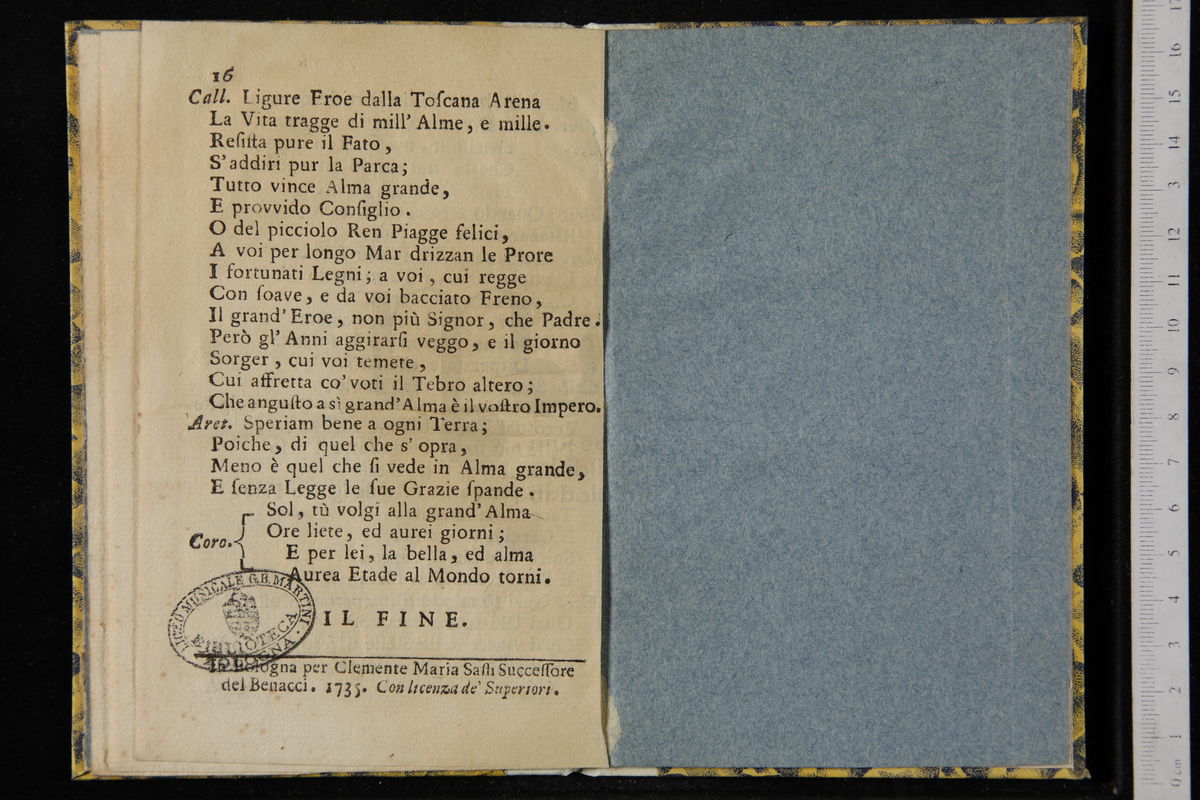 16
Call. Ligure Eroe dalla Toſcana Arena
La Vita tragge di mill' Alme, e mille.
Reſiſta pure il Fato,
S'addiri pur la Parca;
Tutto vince Alma grande,
E provvido Conſiglio.
O del picciolo Ren Piagge felici,
A voi per longo Mar drizzan le Prore
I fortunati Legni; a voi, cui regge
Con ſoave, e da voi bacciato Freno,
Il grand' Eroe, non più Signor, che Padre.
Però gl' Anni aggirarſi veggo, e il giorno
Sorger, cui voi temete,
Cui affretta co' voti il Tebro altero;
Che anguſto a sì grand' Alma è il voſtro Impero.
Aret. Speriam bene a ogni Terra;
Poiche, di quel che s' opra,
Meno è quel che ſi vede in Alma grande,
E ſenza Legge le ſue Grazie ſpande.
Sol, tù volgi alla grand' Alma
Ore liete, ed aurei giorni;
Coro.
E per lei, la bella, ed alma
Aurea Etade al Mondo torni.
LICEO MUSICALE G.B. MARTINI
BIBLIOTECA
BOLOGNA
IL FINE.
In Bologna per Clemente Maria Saſſi Succeſſore
del Benacci. 1735. Con licenza de' Superiori.
17
16
15
14
3
12
11
10
9
8
7
6
5
4
3
2
1
0 cm